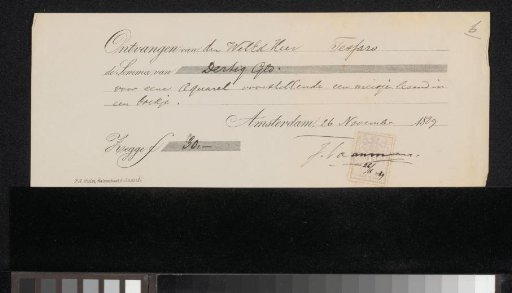 6
Ontvangen van den WelEd Heer Tessaro
de Somma van Dertig Gld.
voor eene Aquarel voorstellende een meisje lezend in
een boekje.
Amsterdam, 26 November 1889
Zegge f 30.—